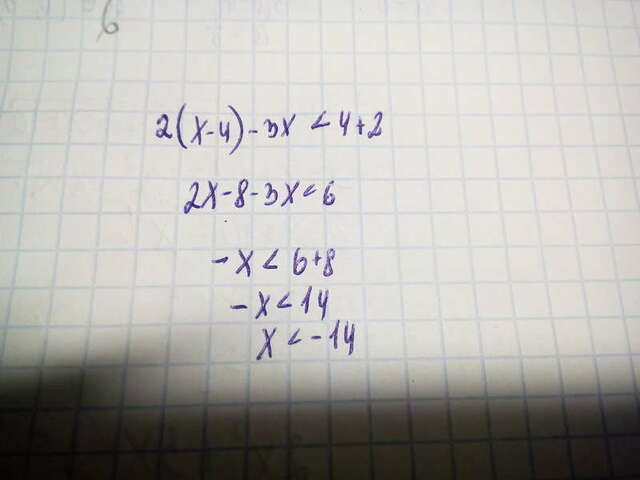 6
2(x-4)-3x < 4+2
2x-8-3x < 6
-x < 6+8
-x < 14
x < -14